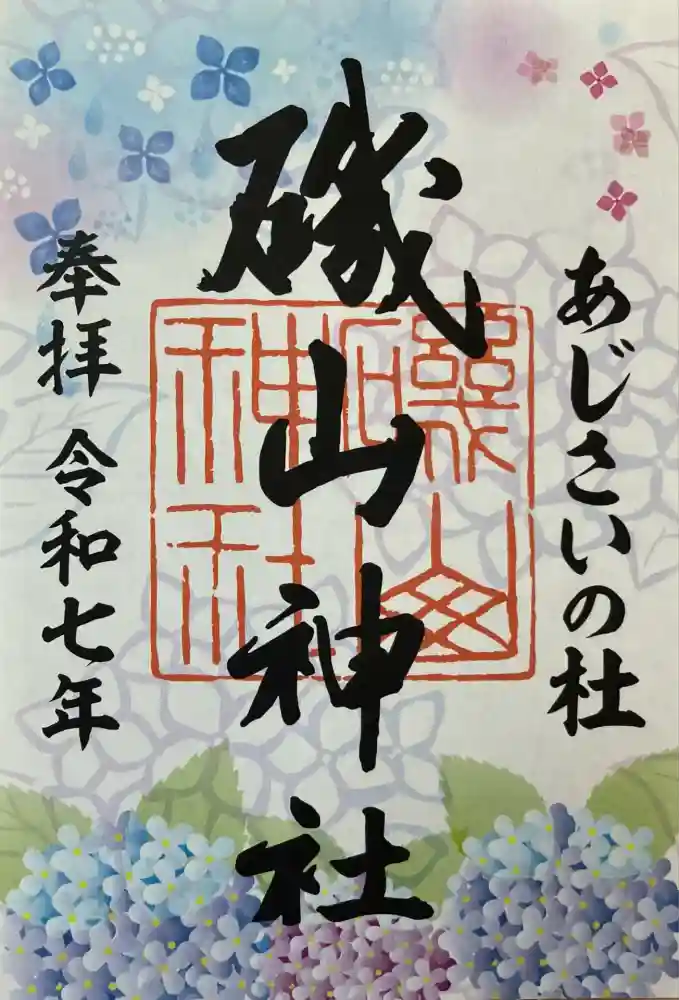 あじさいの杜
磯山神社
磯山
神社
奉拝 令和七年